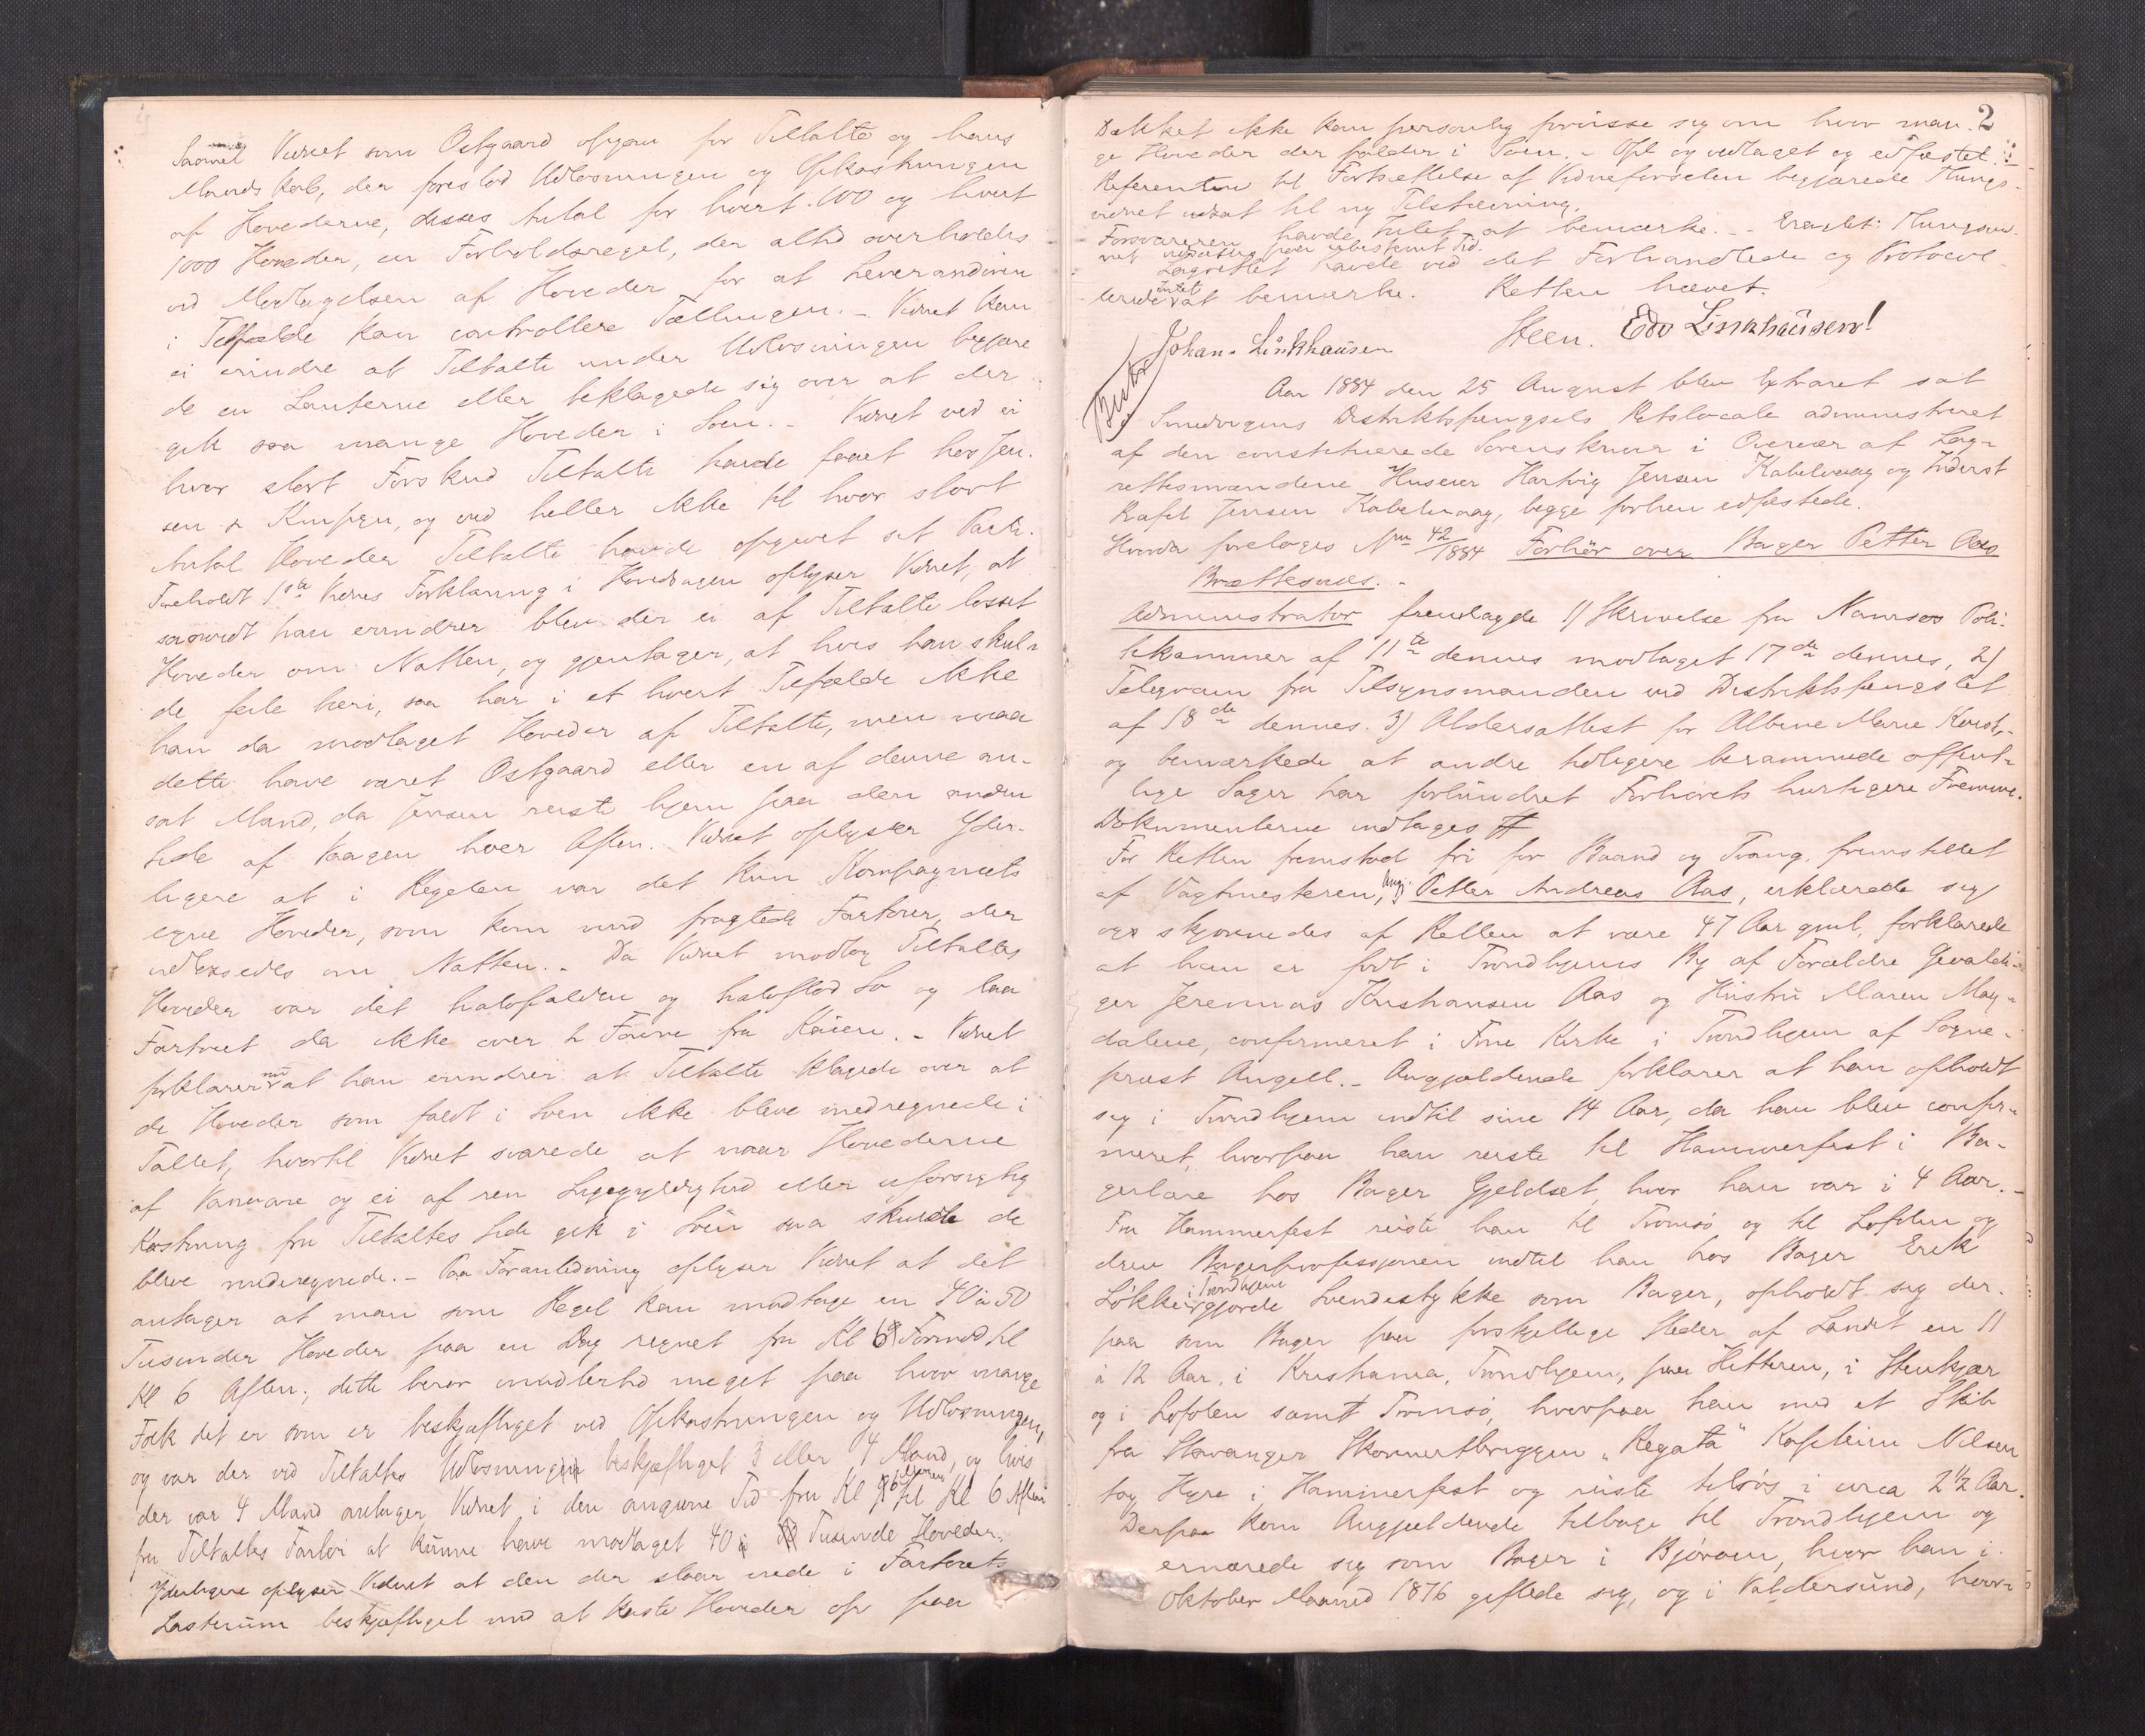 Saavel Vidnet som Ostgaard opgav for Tiltalte og hans
Mandskab, der forestod Udlosningen og Opkastningen
af Hovederne, disses Antal for hvert 100 og hvert
1000 Hoveder, en Forholdsregel, der altid overholdes
ved Modtagelsen af Hoveder for at Leverandøren
i Tilfælde kan controllere Tællingen. - Vidnet kan
ei erindre at Tiltalte under Udlosningen begjære
de en Lanterne eller beklagede sig over at der
gik saa mange Hoveder i Søen. - Vidnet ved ei
hvor stort Forskud Tiltalte havde faaet hos Jen-
sen & Kmpgn, og ved heller ikke til hvor stort
Antal Hoveder Tiltalte havde opgivet sit Parti.
Foreholdt 1ste Vidnes Forklaring i Hovedsagen oplyser Vidnet, at
saavidt han erindrer blev der ei af Tiltalte losset
Hoveder om Natten, og gjentager, at hvis han skul-
de feile heri, saa har i et hvert Tilfælde ikke
han da modtaget Hoveder af Tiltalte, men maa
dette have været Ostgaard eller en af denne an-
sat Mand, da Jensen reiste hjem paa den anden
Side af Vaagen hver Aften. Vidnet oplyser Yder-
ligere at i Regelen var det kun Kompagniets
egne Hoveder, som kom med fragtede Fartøier, der
udlossedes om Natten. - Da Vidnet modtog Tiltaltes
Hoveder var det halvfalden og halvflod Sø og laa
Fartøiet da ikke over 2 Favne fra Kaien. - Vidnet
forklarer nu at han erindrer at Tiltalte klagede over at
de Hoveder som faldt i Søen ikke bleve medregnede i
Tallet, hvortil Vidnet svarede at naar Hovederne
af Vanvare og ei af ren Ligegyldighed eller uforsigtig
Kastning fra Tiltaltes Side gik i Søen saa skulde de
blive medregnede. - Paa Foranledning oplyser Vidnet at det
antager at man som Regel kan modtage en 40 à 50
Tusinder Hoveder paa en Dag regnet fra Kl 6 Formd til
Kl 6 Aften; dette beror imidlertid meget paa hvor mange
Folk det er som er beskjæftiget ved Opkastningen og Udlosningen,
og var der ved Tiltaltes Udlosning beskjæftiget 3 eller 4 Mand, og hvis
der var 4 Mand antager Vidnet i den angivne Tid fra Kl 6 til Kl 6 Aften
fra Tiltaltes Fartøi at kunne have modtaget 40 Tusinde Hoveder.
Yderligere oplyser Vidnet at den der staar nede i Fartøiets
Lasterum beskjæftiget med at kaste Hoveder op paa
2
Dækket ikke kan personlig forvisse sig om hvor man-
ge Hoveder der falder i Søen. - Opl og vedtaget og edfæstet.
Referenten til Fortsættelse af Vidneførselen begjærede Things-
vidnet udsat til ny Tilstævning.
Forsvareren havde Intet at bemærke. - Eragtet: Thingsvid-
net udsættes paa ubestemt Tid.
Lagrettet havde ved det Forhandlede og Protocol-
lerede Intet at bemærke. Retten hævet.
Steen. Edv Linkhausen!
Johan. Linkhausen
Aar 1884 den 25 August blev Extraret sat
i Svolværgens Distriktsfængsels Retslocale administreret
af den constituerede Sorenskriver i Overvær af Lag-
rettesmændene Huseier Hartvig Jensen Kabelvaag og Inderst
Rafel Jensen Kabelvaag, begge forhen edfæstede.
Hvorda foretoges No 42/1884 Forhør over Bager Petter Aas
Brættesnæs. -
Administrator fremlagde 1) Skrivelse fra Namsos Poli-
tikammer af 11te dennes modtaget 17de dennes, 2)
Telegram fra Tilsynsmanden ved Distriktsfængslet
af 18de dennes. 3) Aldersattest for Albine Marie Kvist,
og bemærkede at andre tidligere berammede offent-
lige Sager har forhindret Forhørets hurtigere Fremme.
Dokumenterne indtages #
For Retten fremstod fri for Baand og Tvang, fremstillet
af Vagtmesteren, Angj. Petter Andreas Aas, erklærede sig
og skjønnedes af Retten at være 47 Aar gml, forklarede
at han er født i Trondhjems By af Forældre Gevaldi-
ger Jeremias Kristiansen Aas og Hustru Maren Mag-
dalene, confirmeret i Frue Kirke i Trondhjem af Sogne-
præst Angell. - Angjældende forklarer at han opholdt
sig i Trondhjem indtil sine 14 Aar, da han blev confir-
meret, hvorpaa han reiste til Hammerfest i Ba-
gerlære hos Bager Gjeldset, hvor han var i 4 Aar. -
Fra Hammerfest reiste han til Tromsø og til Lofoten og
drev Bagerprofessionen indtil han hos Bager Erik
Løkke i Trondhjem gjorde Svendestykke som Bager, opholdt sig der-
paa som Bager paa forskjellige Steder af Landet en 11
à 12 Aar, i Kristiania, Trondhjem, paa Hitteren, i Stenkjær
og i Lofoten samt Tromsø, hvorpaa han med et Skib
fra Stavanger Skonnertbriggen "Regata" Kaptein Nilsen
tog Hyre i Hammerfest og reiste tilsøs i circa 2 1/2 Aar.
Derpaa kom Angjældende tilbage til Trondhjem og
ernærede sig som Bager i Bjørøen, hvor han i
Oktober Maaned 1876 giftede sig, og i Valdersund, hvor-